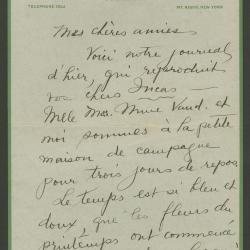 TELEPHONE
MT. KISCO, NEW YORK
Mes chères amies
Voici notre journal
d'hier, qui reproduit
vos chers Incas —
Mlle Mme. Vand. et
moi sommes à la petite
maison de campagne
pour trois jours de repos.
Le temps est si bleu et
doux, que les fleurs du
printemps ont commencé